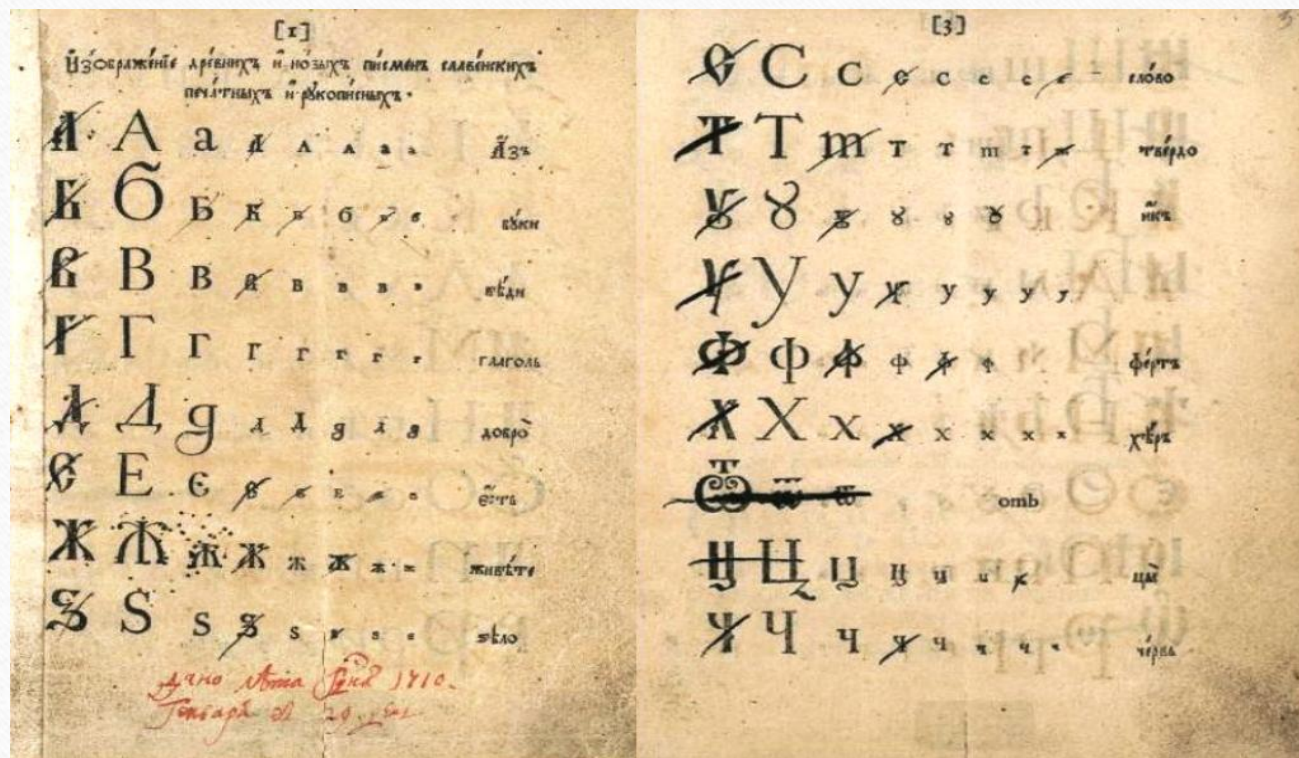 [1]
И҆зображе́нїе дре́внихъ и҆ но́выхъ пи́сменъ славе́нскихъ
печа́тныхъ и҆ рꙋкопи́сныхъ.
А А а а а а а а А҆́зъ
Б Б Б Б б б б б бꙋ́ки
В В в в в в в в вѣ́ди
Г Г г г г г г г глаго́ль
Д Д д д д д д д добро̀
Є Е є є е е е е є҆́сть
Ж Ж ж ж ж ж ж ж живѣ́те
Ѕ Ѕ ѕ ѕ ѕ ѕ ѕ ѕ ѕѣло̀
1710.
29
[3]
С С с с с с с сло́во
Т Т т т т т т тве́рдо
Ꙋ Ꙋ ꙋ ꙋ ꙋ ꙋ и҆́къ
У У у у у у у у
Ф ф ф ф ф ф фе́ртъ
Х Х х х х х х х хѣ́ръ
Ѿ ѿ ѿ отъ
Ц Ц ц ц ц ц ц цы̀
Ч Ч ч ч ч ч ч ч че́рвь